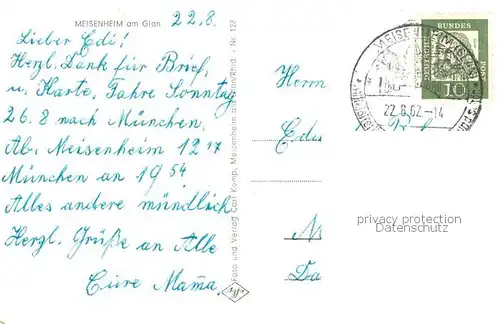 MEISENHEIM am Glan
22.8.
Lieber Edi!
Herzl. Dank für Brief,
u. Karte. Fahre Sonntag
26.8 nach München,
Ab. Meisenheim 12 17
München an 19 54
Alles andere mündlich
Herzl. Grüße an Alle
Eure Mama.
Foto und Verlag Carl Kemp, Meisenheim am Glan/Rhld. - Nr. 122
Herrn
Edu
M
Da
DEUTSCHE
BUNDES
POST
10
MEISENHEIM
22.8.62-14
privacy protection
Datenschutz